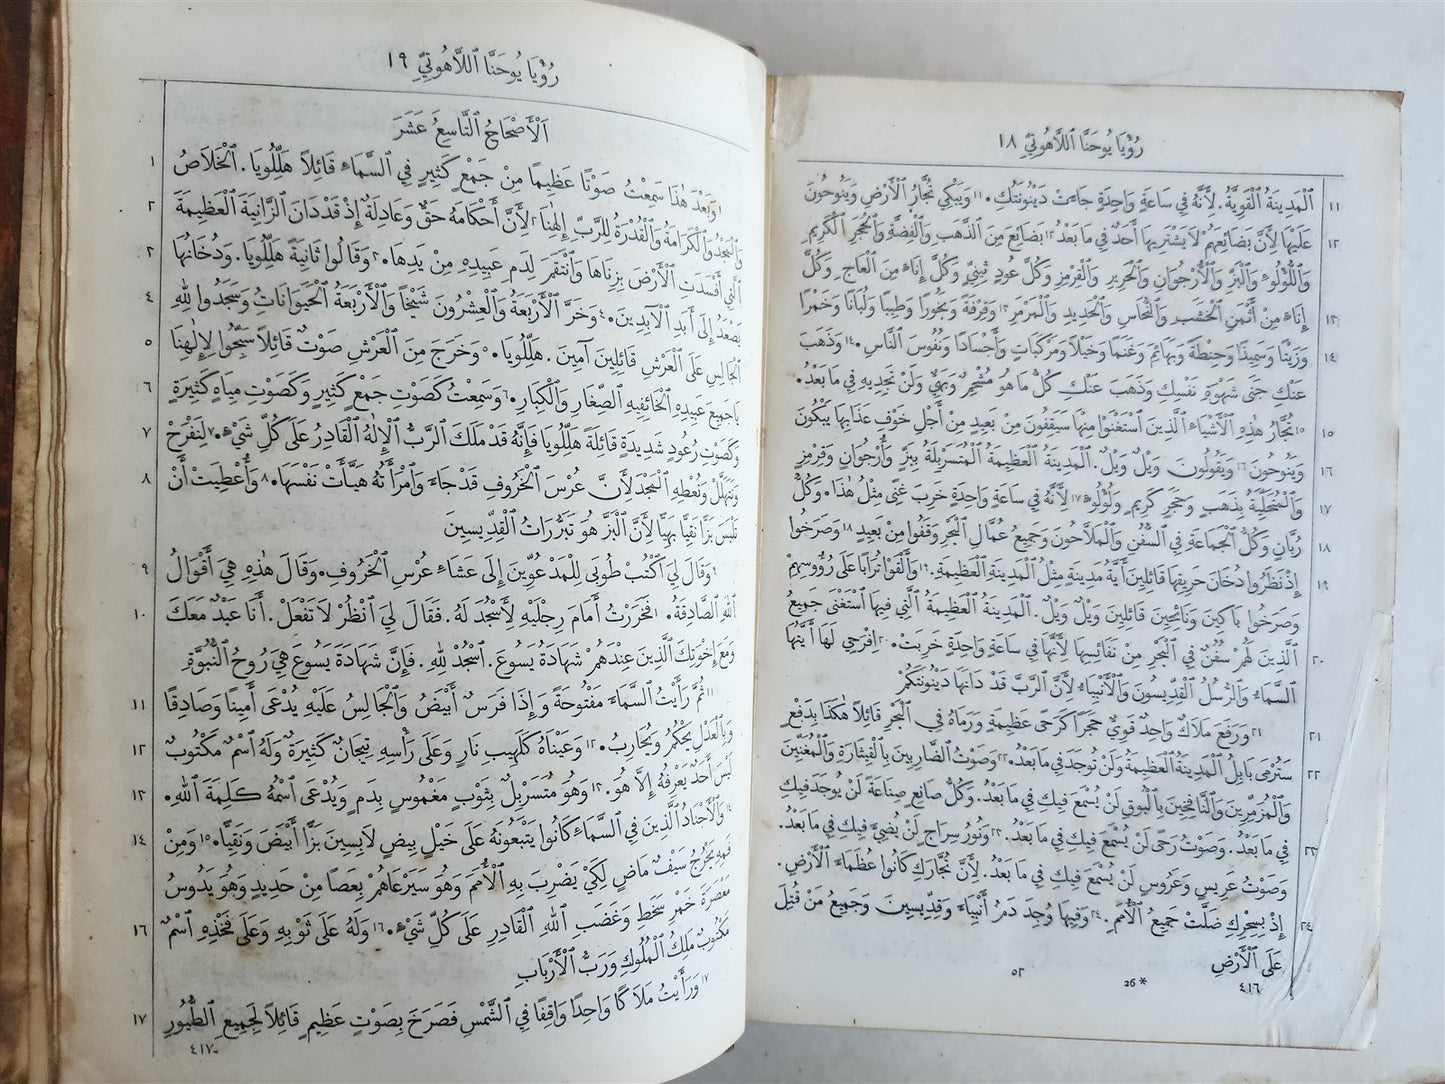 رُؤْيَا يُوحَنَّا ٱللَّاهُوتِيِّ ١٨
١١ ٱلْمَدِينَةُ ٱلْقَوِيَّةُ. لِأَنَّهُ فِي سَاعَةٍ وَاحِدَةٍ جَاءَتْ دَيْنُونَتُكِ. ١١وَيَبْكِي تُجَّارُ ٱلْأَرْضِ وَيَنُوحُونَ
١٢ عَلَيْهَا لِأَنَّ بَضَائِعَهُمْ لَا يَشْتَرِيهَا أَحَدٌ فِي مَا بَعْدُ ١٢بَضَائِعَ مِنَ ٱلذَّهَبِ وَٱلْفِضَّةِ وَٱلْحَجَرِ ٱلْكَرِيمِ
وَٱللُّؤْلُوءِ وَٱلْبَزِّ وَٱلْأُرْجُوانِ وَٱلْحَرِيرِ وَٱلْقِرْمِزِ وَكُلَّ عُودٍ ثِينِيٍّ وَكُلَّ إِنَاءٍ مِنَ ٱلْعَاجِ وَكُلَّ
١٣ إِنَاءٍ مِنْ أَثْمَنِ ٱلْخَشَبِ وَٱلنُّحَاسِ وَٱلْحَدِيدِ وَٱلْمَرْمَرِ ١٣وَقِرْفَةً وَبَخُورًا وَطِيبًا وَلُبَانًا وَخَمْرًا
١٤ وَزَيْتًا وَسَمِيذًا وَحِنْطَةً وَبَهَائِمَ وَغَنَمًا وَخَيْلًا وَمَرْكَبَاتٍ وَأَجْسَادًا وَنُفُوسَ ٱلنَّاسِ. ١٤وَذَهَبَ
عَنْكِ جَنَى شَهْوَةِ نَفْسِكِ وَذَهَبَ عَنْكِ كُلُّ مَا هُوَ مُشْحِمٌ وَبَهِيٌّ وَلَنْ تَجِدِيهِ فِي مَا بَعْدُ.
١٥ ١٥تُجَّارُ هٰذِهِ ٱلْأَشْيَاءِ ٱلَّذِينَ ٱسْتَغْنَوْا مِنْهَا سَيَقِفُونَ مِنْ بَعِيدٍ مِنْ أَجْلِ خَوْفِ عَذَابِهَا يَبْكُونَ
١٦ وَيَنُوحُونَ ١٦وَيَقُولُونَ وَيْلٌ وَيْلٌ. ٱلْمَدِينَةُ ٱلْعَظِيمَةُ ٱلْمُتَسَرْبِلَةُ بِبَزٍّ وَأُرْجُوانٍ وَقِرْمِزٍ
١٧ وَٱلْمُتَحَلِّيَةُ بِذَهَبٍ وَحَجَرٍ كَرِيمٍ وَلُؤْلُوءٍ ١٧لِأَنَّهُ فِي سَاعَةٍ وَاحِدَةٍ خَرِبَ غِنًى مِثْلُ هٰذَا. وَكُلُّ
١٨ رُبَّانٍ وَكُلُّ ٱلْجَمَاعَةِ فِي ٱلسُّفُنِ وَٱلْمَلَّاحُونَ وَجَمِيعُ عُمَّالِ ٱلْبَحْرِ وَقَفُوا مِنْ بَعِيدٍ ١٨وَصَرَخُوا
١٩ إِذْ نَظَرُوا دُخَانَ حَرِيقِهَا قَائِلِينَ أَيَّةُ مَدِينَةٍ مِثْلُ ٱلْمَدِينَةِ ٱلْعَظِيمَةِ. ١٩وَأَلْقَوْا تُرَابًا عَلَى رُؤُوسِهِمْ
وَصَرَخُوا بَاكِينَ وَنَائِحِينَ قَائِلِينَ وَيْلٌ وَيْلٌ. ٱلْمَدِينَةُ ٱلْعَظِيمَةُ ٱلَّتِي فِيهَا ٱسْتَغْنَى جَمِيعُ
٢٠ ٱلَّذِينَ لَهُمْ سُفُنٌ فِي ٱلْبَحْرِ مِنْ نَفَائِسِهَا لِأَنَّهَا فِي سَاعَةٍ وَاحِدَةٍ خَرِبَتْ. ٢٠اِفْرَحِي لَهَا أَيَّتُهَا
ٱلسَّمَاءُ وَٱلرُّسُلُ ٱلْقِدِّيسُونَ وَٱلْأَنْبِيَاءُ لِأَنَّ ٱلرَّبَّ قَدْ دَانَهَا دَيْنُونَتَكُمْ
٢١ ٢١وَرَفَعَ مَلَاكٌ وَاحِدٌ قَوِيٌّ حَجَرًا كَرَحًى عَظِيمَةٍ وَرَمَاهُ فِي ٱلْبَحْرِ قَائِلًا هٰكَذَا بِدَفْعٍ
٢٢ سَتُرْمَى بَابِلُ ٱلْمَدِينَةُ ٱلْعَظِيمَةُ وَلَنْ تُوجَدَ فِي مَا بَعْدُ. ٢٢وَصَوْتُ ٱلضَّارِبِينَ بِٱلْقِيثَارَةِ وَٱلْمُغَنِّينَ
وَٱلْمُزَمِّرِينَ وَٱلنَّافِخِينَ بِٱلْبُوقِ لَنْ يُسْمَعَ فِيكِ فِي مَا بَعْدُ. وَكُلُّ صَانِعٍ صِنَاعَةً لَنْ يُوجَدَ فِيكِ
٢٣ فِي مَا بَعْدُ. وَصَوْتُ رَحًى لَنْ يُسْمَعَ فِيكِ فِي مَا بَعْدُ. ٢٣وَنُورُ سِرَاجٍ لَنْ يُضِيَّ فِيكِ فِي مَا بَعْدُ.
وَصَوْتُ عَرِيسٍ وَعَرُوسٍ لَنْ يُسْمَعَ فِيكِ فِي مَا بَعْدُ. لِأَنَّ تُجَّارَكِ كَانُوا عُظَمَاءَ ٱلْأَرْضِ.
٢٤ إِذْ بِسِحْرِكِ ضَلَّتْ جَمِيعُ ٱلْأُمَمِ. ٢٤وَفِيهَا وُجِدَ دَمُ أَنْبِيَاءَ وَقِدِّيسِينَ وَجَمِيعِ مَنْ قُتِلَ
عَلَى ٱلْأَرْضِ
٥٢
26*
٤١٦
رُؤْيَا يُوحَنَّا ٱللَّاهُوتِيِّ ١٩
اَلْأَصْحَاحُ ٱلتَّاسِعُ عَشَرَ
١ ١وَبَعْدَ هٰذَا سَمِعْتُ صَوْتًا عَظِيمًا مِنْ جَمْعٍ كَثِيرٍ فِي ٱلسَّمَاءِ قَائِلًا هَلِّلُويَا. ٱلْخَلَاصُ
٢ وَٱلْمَجْدُ وَٱلْكَرَامَةُ وَٱلْقُدْرَةُ لِلرَّبِّ إِلٰهِنَا ٢لِأَنَّ أَحْكَامَهُ حَقٌّ وَعَادِلَةٌ إِذْ قَدْ دَانَ ٱلزَّانِيَةَ ٱلْعَظِيمَةَ
٣ ٱلَّتِي أَفْسَدَتِ ٱلْأَرْضَ بِزِنَاهَا وَٱنْتَقَمَ لِدَمِ عَبِيدِهِ مِنْ يَدِهَا. ٣وَقَالُوا ثَانِيَةً هَلِّلُويَا. وَدُخَانُهَا
٤ يَصْعَدُ إِلَى أَبَدِ ٱلْآبِدِينَ. ٤وَخَرَّ ٱلْأَرْبَعَةُ وَٱلْعِشْرُونَ شَيْخًا وَٱلْأَرْبَعَةُ ٱلْحَيَوَانَاتُ وَسَجَدُوا لِلهِ
٥ ٱلْجَالِسِ عَلَى ٱلْعَرْشِ قَائِلِينَ آمِينَ. هَلِّلُويَا. ٥وَخَرَجَ مِنَ ٱلْعَرْشِ صَوْتٌ قَائِلًا سَبِّحُوا لِإِلٰهِنَا
٦ يَا جَمِيعَ عَبِيدِهِ ٱلْخَائِفِيهِ ٱلصِّغَارِ وَٱلْكِبَارِ. ٦وَسَمِعْتُ كَصَوْتِ جَمْعٍ كَثِيرٍ وَكَصَوْتِ مِيَاهٍ كَثِيرَةٍ
٧ وَكَصَوْتِ رُعُودٍ شَدِيدَةٍ قَائِلَةً هَلِّلُويَا فَإِنَّهُ قَدْ مَلَكَ ٱلرَّبُّ ٱلْإِلٰهُ ٱلْقَادِرُ عَلَى كُلِّ شَيْءٍ. ٧لِنَفْرَحْ
٨ وَنَتَهَلَّلْ وَنُعْطِهِ ٱلْمَجْدَ لِأَنَّ عُرْسَ ٱلْخَرُوفِ قَدْ جَاءَ وَٱمْرَأَتُهُ هَيَّأَتْ نَفْسَهَا. ٨وَأُعْطِيَتْ أَنْ
تَلْبَسَ بَزًّا نَقِيًّا بَهِيًّا لِأَنَّ ٱلْبَزَّ هُوَ تَبَرُّرَاتُ ٱلْقِدِّيسِينَ
٩ ٩وَقَالَ لِيَ ٱكْتُبْ طُوبَى لِلْمَدْعُوِّينَ إِلَى عَشَاءِ عُرْسِ ٱلْخَرُوفِ. وَقَالَ هٰذِهِ هِيَ أَقْوَالُ
١٠ ٱللهِ ٱلصَّادِقَةُ. ١٠فَخَرَرْتُ أَمَامَ رِجْلَيْهِ لِأَسْجُدَ لَهُ. فَقَالَ لِيَ ٱنْظُرْ لَا تَفْعَلْ. أَنَا عَبْدٌ مَعَكَ
وَمَعَ إِخْوَتِكَ ٱلَّذِينَ عِنْدَهُمْ شَهَادَةُ يَسُوعَ. ٱسْجُدْ لِلهِ. فَإِنَّ شَهَادَةَ يَسُوعَ هِيَ رُوحُ ٱلنُّبُوَّةِ
١١ ١١ثُمَّ رَأَيْتُ ٱلسَّمَاءَ مَفْتُوحَةً وَإِذَا فَرَسٌ أَبْيَضُ وَٱلْجَالِسُ عَلَيْهِ يُدْعَى أَمِينًا وَصَادِقًا
١٢ وَبِٱلْعَدْلِ يَحْكُمُ وَيُحَارِبُ. ١٢وَعَيْنَاهُ كَلَهِيبِ نَارٍ وَعَلَى رَأْسِهِ تِيجَانٌ كَثِيرَةٌ وَلَهُ ٱسْمٌ مَكْتُوبٌ
١٣ لَيْسَ أَحَدٌ يَعْرِفُهُ إِلَّا هُوَ. ١٣وَهُوَ مُتَسَرْبِلٌ بِثَوْبٍ مَغْمُوسٍ بِدَمٍ وَيُدْعَى ٱسْمُهُ كَلِمَةَ ٱللهِ.
١٤ ١٤وَٱلْأَجْنَادُ ٱلَّذِينَ فِي ٱلسَّمَاءِ كَانُوا يَتْبَعُونَهُ عَلَى خَيْلٍ بِيضٍ لَابِسِينَ بَزًّا أَبْيَضَ وَنَقِيًّا. ١٥وَمِنْ
فَمِهِ يَخْرُجُ سَيْفٌ مَاضٍ لِكَيْ يَضْرِبَ بِهِ ٱلْأُمَمَ وَهُوَ سَيَرْعَاهُمْ بِعَصًا مِنْ حَدِيدٍ وَهُوَ يَدُوسُ
١٦ مَعْصَرَةَ خَمْرِ سَخَطِ وَغَضَبِ ٱللهِ ٱلْقَادِرِ عَلَى كُلِّ شَيْءٍ. ١٦وَلَهُ عَلَى ثَوْبِهِ وَعَلَى فَخْذِهِ ٱسْمٌ
مَكْتُوبٌ مَلِكُ ٱلْمُلُوكِ وَرَبُّ ٱلْأَرْبَابِ
١٧ ١٧وَرَأَيْتُ مَلَاكًا وَاحِدًا وَاقِفًا فِي ٱلشَّمْسِ فَصَرَخَ بِصَوْتٍ عَظِيمٍ قَائِلًا لِجَمِيعِ ٱلطُّيُورِ
٤١٧